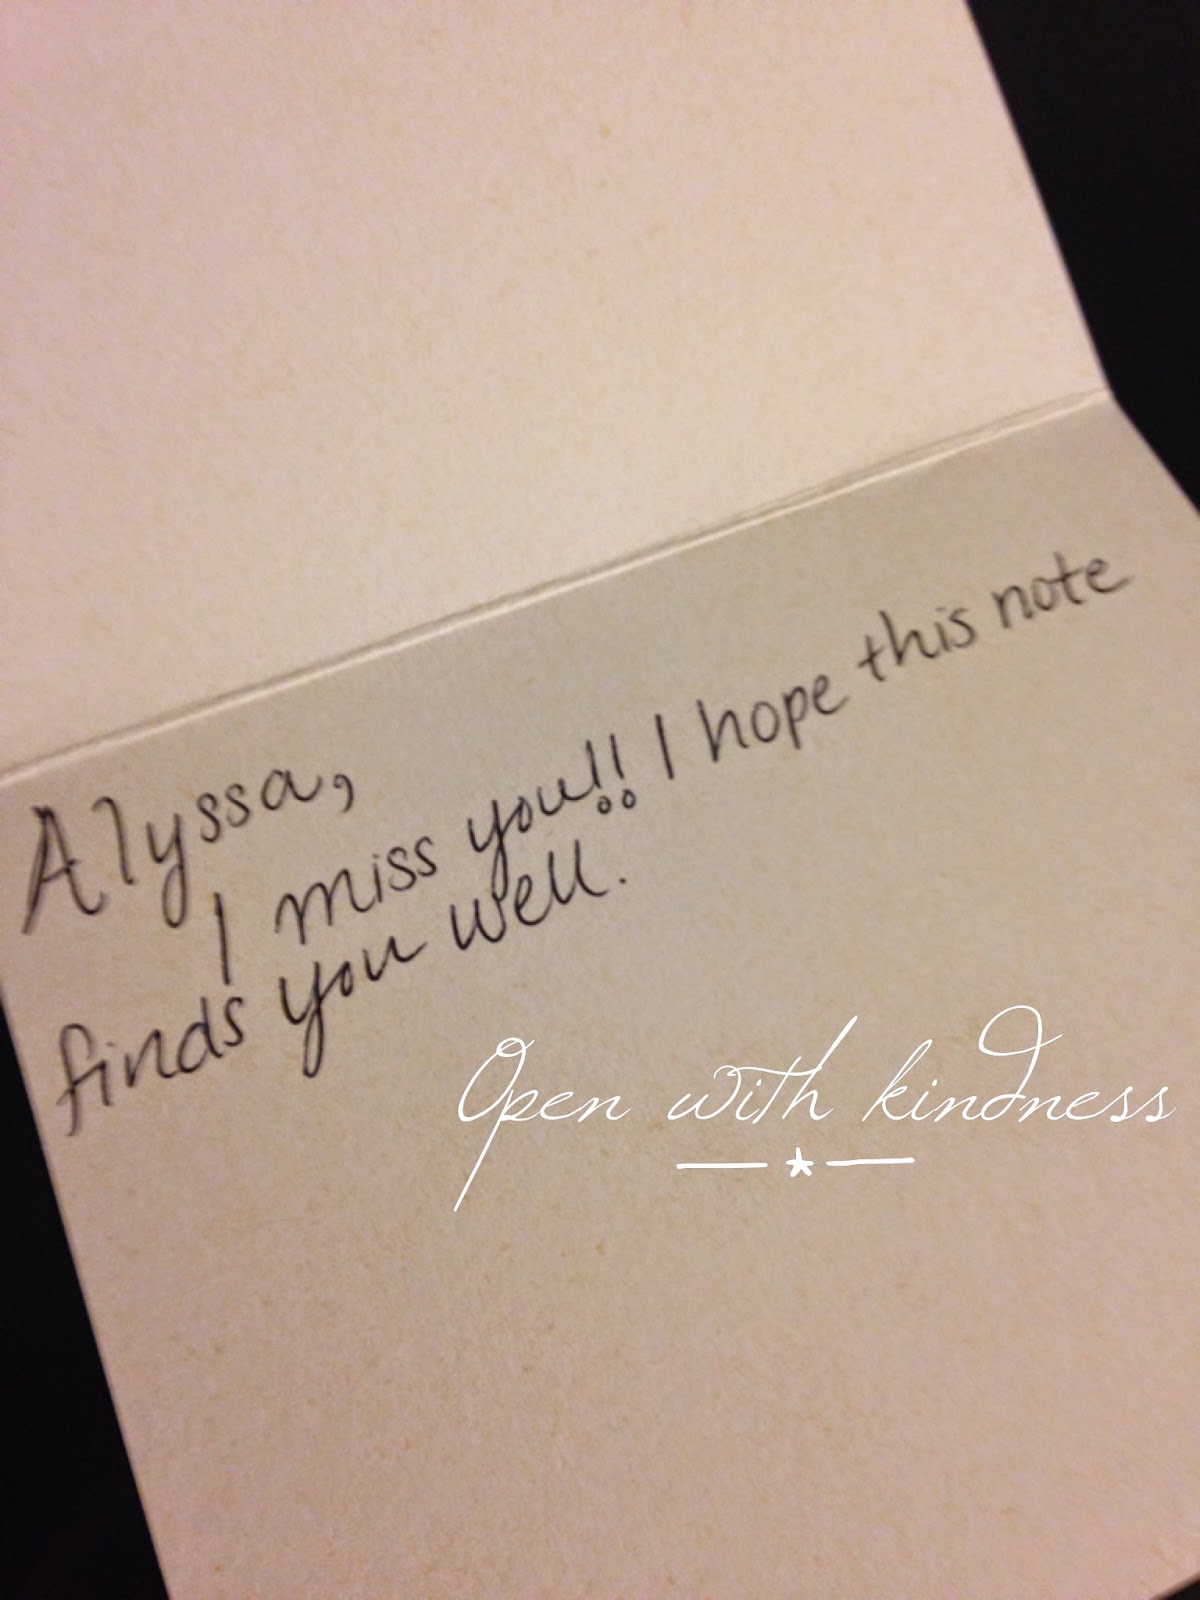 Alyssa,
I miss you!! I hope this note
finds you well.
Open with kindness